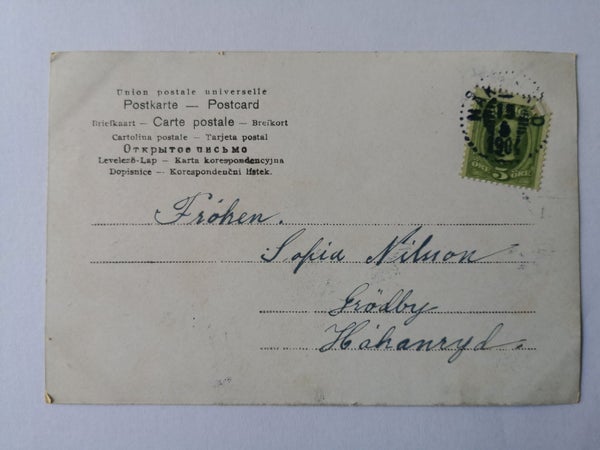 Union postale universelle
Postkarte — Postcard
Briefkaart — Carte postale — Brefkort
Cartolina postale — Tarjeta postal
Открытое письмо
Levelező-Lap — Karta korespondencyjna
Dopisnice — Korespondenční lístek.
5 ÖRE
Fröken.
Sofia Nilsson
Grödby
Håkanryd.